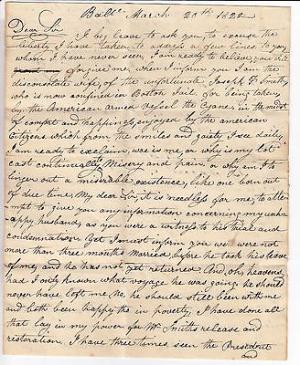 Balt. March 20th 1822
Dear Sir
I beg leave to ask you, to excuse the
liberty I have taken, to adress a few lines to you,
whom I have never seen. I am ready to believe you will
forgive me, when I inform you I am the
disconsolate wife, of the unfortunate Joseph F. Smith,
who is now confined in Boston Jail, for being taken
by the American armed vessel the Cyane, in the midst
of comfort and happiness enjoyed by the american
Citizens which from the smiles and gaiety I see daily
I am ready to exclaim, woe is me, or why is my lot
cast continually Misery and pain, or why am I to
linger out a miserable existence, like one born out
of due time, My dear Sir, it is needless for me, to attem
pt to give you any information concerning my unha
ppy husband, as you were a witness to his trial and
condemnation. Yet I must inform you we were not
more than three months Married, before he took his leave
of me, and he has not yet returned And, oh, heavens
had I only known what voyage he was going he should
never have left me, No, he should still been with me
and both been happy tho in poverty, I have done all
that lay in my power for Mr Smiths release and
restoration. I have three times seen the President
and